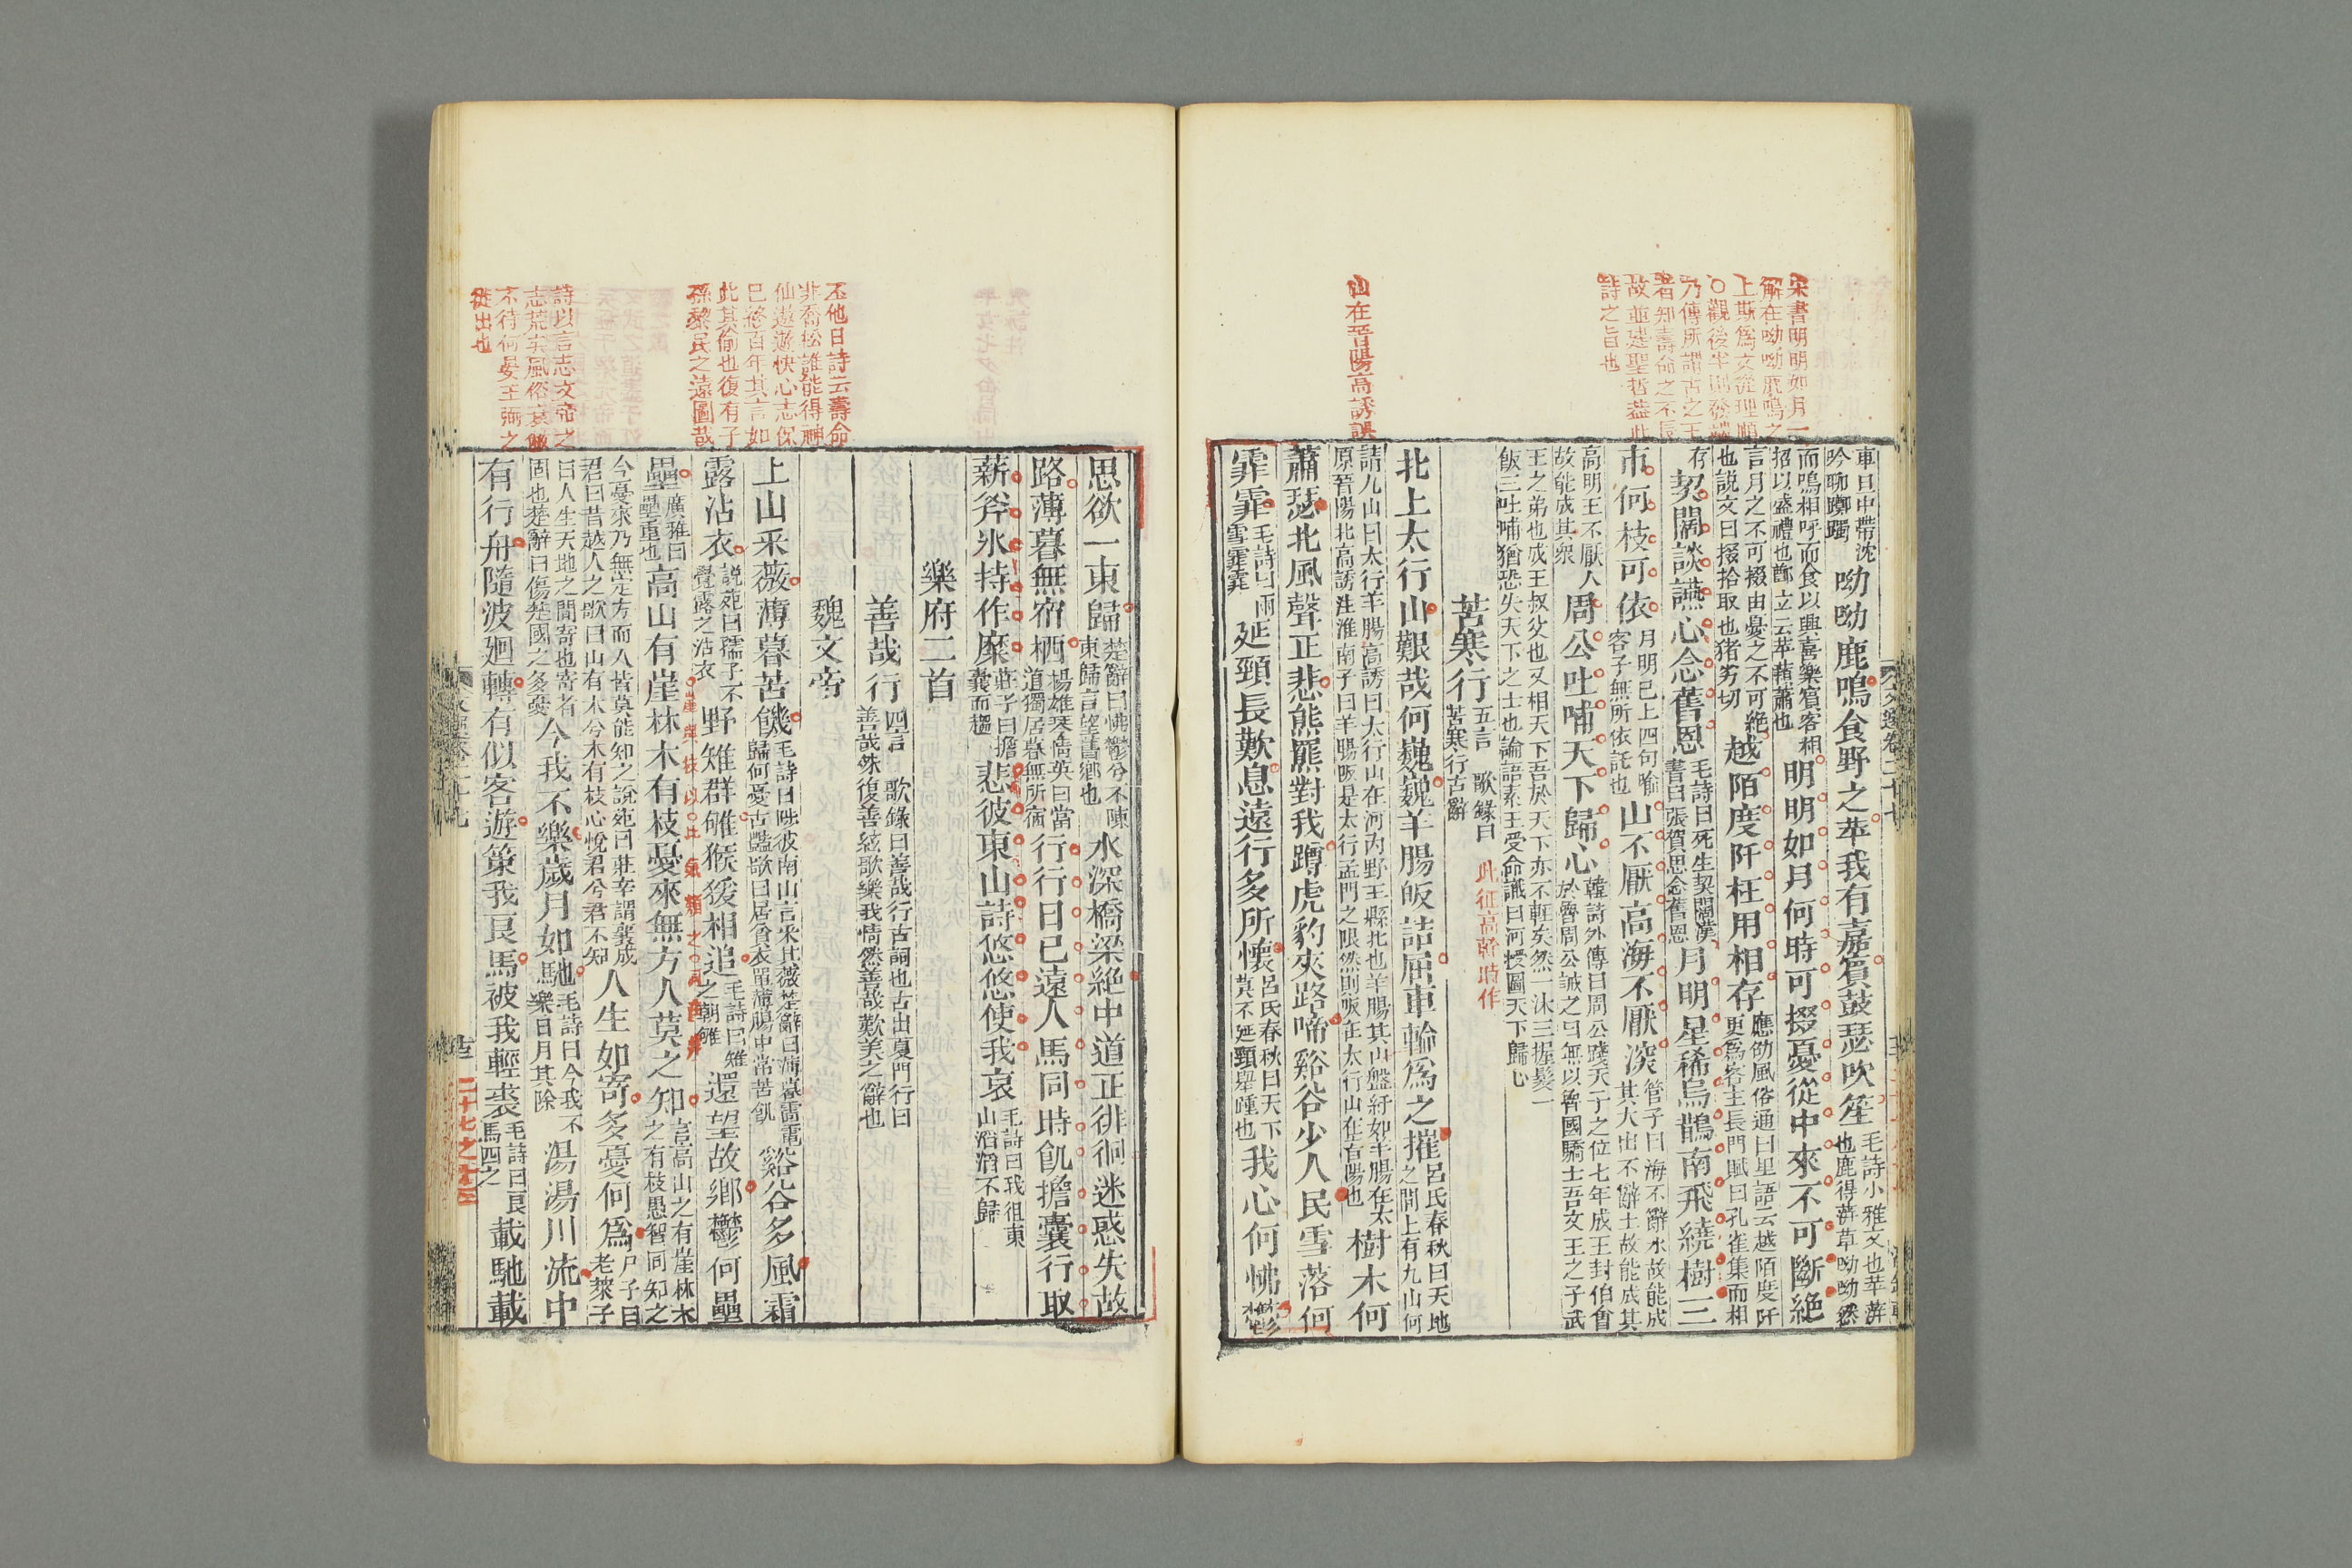 宋書明明如月一
解在呦呦鹿鳴之
上斯為文從理順
○觀後半則發端
乃傳所謂古之王
者知壽命之不長
故並建聖哲蓋此
詩之旨也
山在晉陽高誘誤
車旦中帶沈
吟聊躑躅
呦呦鹿鳴食野之苹我有嘉賔鼓瑟吹笙
毛詩小雅文也苹蓱
也鹿得蓱草呦呦然
而鳴相呼而食以興喜樂賔客相
招以盛禮也鄭立云苹藾蕭也
明明如月何時可掇憂從中來不可斷絶
言月之不可掇由憂之不可絶
也説文曰掇拾取也猪劣切
越陌度阡枉用相存
應劭風俗通曰里語云越陌度阡
更為客主長門賦曰孔雀集而相
存
契闊談讌心念舊恩
毛詩曰死生契闊漢
書曰張賀思念舊恩
月明星稀烏鵲南飛繞樹三
帀何枝可依
月明已上四句喻
客子無所依託也
山不厭高海不厭深
管子曰海不辭水故能成
其大山不辭土故能成其
高明王不厭人
故能成其衆
周公吐哺天下歸心
韓詩外傳曰周公踐天子之位七年成王封伯禽
於魯周公誡之曰無以魯國驕士吾文王之子武
王之弟也成王叔父也又相天下吾於天下亦不輕矣然一沐三握髮一
飯三吐哺猶恐失天下之士也論語素王受命讖曰河授圖天下歸心
苦寒行
五言 歌錄曰
苦寒行古辭
此征高幹時作
北上太行山艱哉何巍巍羊腸坂詰屈車輪爲之摧
呂氏春秋曰天地
之間上有九山何
請九山曰太行羊腸高誘曰太行山在河内野王縣北也羊腸其山盤紆如羊腸在太
原晉陽北高誘注淮南子曰羊腸坂是太行孟門之限然則坂在太行山在晉陽也
樹木何
蕭瑟北風聲正悲熊羆對我蹲虎豹夾路啼谿谷少人民雪落何
霏霏
毛詩曰雨
雪霏霏
延頸長歎息遠行多所懷
呂氏春秋曰天下
莫不延頸舉踵也
我心何怫鬱
思欲一東歸
楚辭曰怫鬱兮不陳
東歸言望舊鄉也
水深橋梁絶中道正徘徊迷惑失故
路薄暮無宿栖
楊雄琴清英曰當
道獨居暮無所宿
行行日已遠人馬同時飢擔囊行取
薪斧氷持作糜
莊子曰擔
囊而趨
悲彼東山詩悠悠使我哀
毛詩曰我徂東
山滔滔不歸
樂府二首
善哉行
四言 歌錄曰善哉行古詞也古出夏門行曰
善哉殊復善絃歌樂我情然善哉歎美之辭也
魏文帝
丕他日詩云壽命
非喬松誰能得神
仙遨遊快心志保
已終百年其言如
此其偷也復有子
孫黎民之遠圖哉
上山采薇薄暮苦饑
毛詩曰陟彼南山言采其薇楚辭曰薄暮雷電
歸何憂古豔歌曰居貧衣單薄腸中常苦飢
谿谷多風霜
露沾衣
説苑曰孺子不
覺露之沾衣
野雉群雊猴猨相追
毛詩曰雉
之朝雊
還望故鄉鬱何壘
壘
廣雅曰
壘重也
高山有崖林木有枝憂來無方人莫之知
言高山之有崖林木
之有枝愚智同知之
今憂來乃無定方而人皆莫能知之説苑曰莊辛謂襄成
君曰昔越人之歌曰山有木兮木有枝心悅君兮君不知
人生如寄多憂何爲
尸子曰
老萊子
曰人生天地之間寄也寄者
固也楚辭曰傷楚國之多憂
今我不樂歲月如馳
毛詩曰今我不
樂日月其除
湯湯川流中
有行舟隨波迴轉有似客遊策我良馬被我輕裘
毛詩曰良
馬四之
載馳載
詩以言志文帝之
志荒矣風俗衰敝
不待何晏王弼之
從出也
二十七之